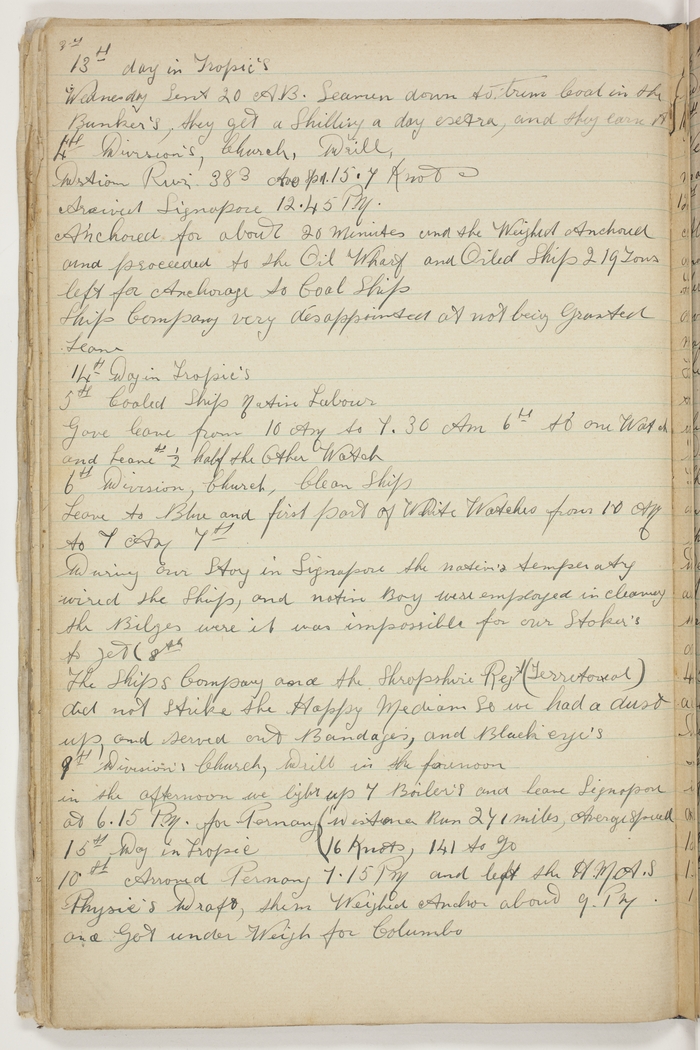 13th day in Tropic's
Wednesday Sent 20 A.B. Seamen down to trim Coal in the
Bunker's, they get a Shilling a day exetra, and they earn it
4th Division's, Church, Drill,
Distion Run 383 15.7 Knots
Arrived Signapore 12.45 PM.
Anchored for about 20 Minutes and the Weighed Anchored
and proceeded to the Oil Wharf and Oiled Ship 219 Tons
left for Anchorage to Coal Ship
Ships Company very desappointed at not being Granted
Leave
14th Day in Tropic's
5th Coaled Ship Native Labour
Gave leave from 10 AM to 7.30 AM 6th to one Watch
and Leave to 1/2 half the Other Watch
6th Division, Church, Clean Ship
Leave to Blue and first part of White Watches from 10 AM
to 7 AM 7th
During our Stay in Signapore the native's temperaty
wired the Ship, and nativ Boy were employed in cleaning
the Bilges were it was impossible for our Stoker's
to get (8th
The Ships Company and the Shropshire Regt (Territoral)
did not Strike the Happy Mediam So we had a dust
up, and served out Bandages, and Black eye's
9th Division's Church, Drill in the forenoon
in the afternoon we light up 7 Boiler's and leave Signapore
at 6.15 PM. for Pernang (Distance Run 241 miles, Averge speed
15th Day in Tropic (16 Knots, 141 to Go
10th Arrived Pernang 7.15 PM and left the H.M.A.S
Physic's Draft, then Weighed Anchor about 9. PM.
and Got under Weigh for Columbo